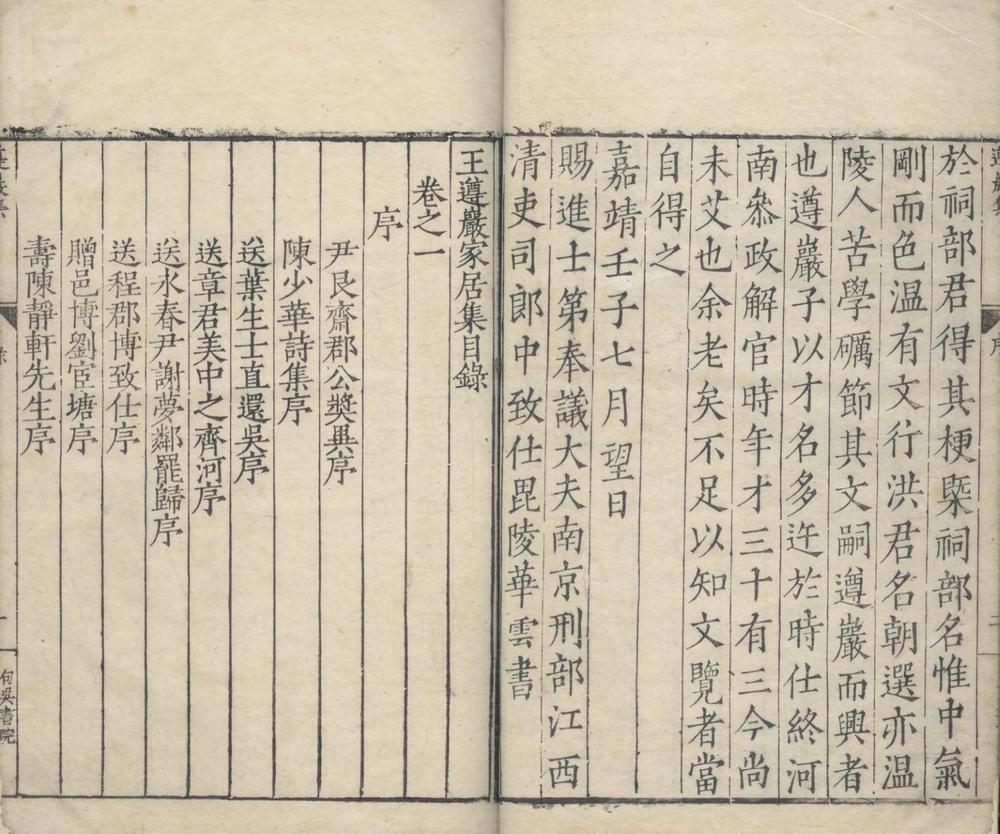 於祠部君得其梗槩祠部名惟中氣
剛而色温有文行洪君名朝選亦温
陵人苦學礪節其文嗣遵巖而興者
也遵巖子以才名多迕於時仕終河
南叅政解官時年才三十有三今尚
未艾也余老矣不足以知文覽者當
自得之
嘉靖壬子七月望日
賜進士第奉議大夫南京刑部江西
清吏司郎中致仕毘陵華雲書
王遵巖家居集目錄
卷之一
序
尹艮齋郡公奬異序
陳少華詩集序
送葉生士直還吳序
送章君美中之齊河序
送永春尹謝夢鄰罷歸序
送程郡博致仕序
贈邑博劉宦塘序
壽陳靜軒先生序
句吳書院